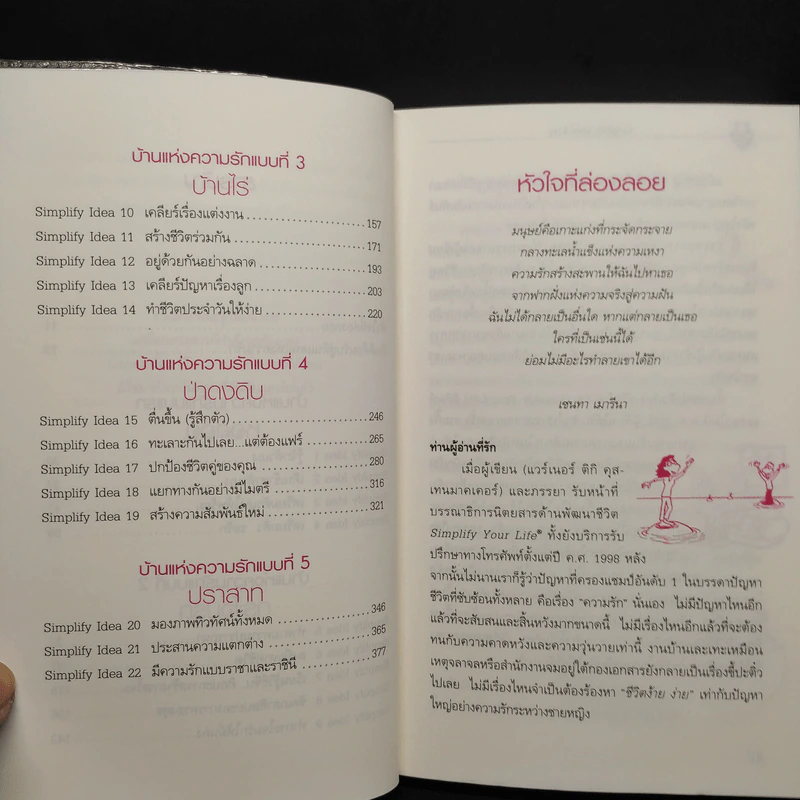 บ้านแห่งความรักแบบที่ 3
บ้านไร่
Simplify Idea 10 เคลียร์เรื่องแต่งงาน 157
Simplify Idea 11 สร้างชีวิตร่วมกัน 171
Simplify Idea 12 อยู่ด้วยกันอย่างฉลาด 193
Simplify Idea 13 เคลียร์ปัญหาเรื่องลูก 203
Simplify Idea 14 ทำชีวิตประจำวันให้ง่าย 220
บ้านแห่งความรักแบบที่ 4
ป่าดงดิบ
Simplify Idea 15 ตื่นขึ้น (รู้สึกตัว) 246
Simplify Idea 16 ทะเลาะกันไปเลย...แต่ต้องแฟร์ 265
Simplify Idea 17 ปกป้องชีวิตคู่ของคุณ 280
Simplify Idea 18 แยกทางกันอย่างมีไมตรี 316
Simplify Idea 19 สร้างความสัมพันธ์ใหม่ 321
บ้านแห่งความรักแบบที่ 5
ปราสาท
Simplify Idea 20 มองภาพทิวทัศน์ทั้งหมด 346
Simplify Idea 21 ประสานความแตกต่าง 365
Simplify Idea 22 มีความรักแบบราชาและราชินี 377
หัวใจที่ล่องลอย
มนุษย์คือเกาะแก่งที่กระจัดกระจาย
กลางทะเลน้ำแข็งแห่งความเหงา
ความรักสร้างสะพานให้ฉันไปหาเธอ
จากฟากฝั่งแห่งความจริงสู่ความฝัน
ฉันไม่ได้กลายเป็นอื่นใด หากแต่กลายเป็นเธอ
ใครที่เป็นเช่นนี้ได้
ย่อมไม่มีอะไรทำลายเขาได้อีก
เซนทา เมารีนา
ท่านผู้อ่านที่รัก
เมื่อผู้เขียน (แวร์เนอร์ ติกิ คุส-
เทนมาคเคอร์) และภรรยา รับหน้าที่
บรรณาธิการนิตยสารด้านพัฒนาชีวิต
Simplify Your Life® ทั้งยังบริการรับ
ปรึกษาทางโทรศัพท์ตั้งแต่ปี ค.ศ. 1998 หลัง
จากนั้นไม่นานเราก็รู้ว่าปัญหาที่ครองแชมป์อันดับ 1 ในบรรดาปัญหา
ชีวิตที่ซับซ้อนทั้งหลาย คือเรื่อง “ความรัก” นั่นเอง ไม่มีปัญหาไหนอีก
แล้วที่จะสับสนและสิ้นหวังมากขนาดนี้ ไม่มีเรื่องไหนอีกแล้วที่จะต้อง
ทนกับความคาดหวังและความวุ่นวายเท่านี้ งานบ้านและเทะเหมือน
เหตุจลาจลหรือสำนักงานจมอยู่ใต้กองเอกสารยังกลายเป็นเรื่องขี้ปะติ๋ว
ไปเลย ไม่มีเรื่องไหนจำเป็นต้องร้องหา “ชีวิตง้าย ง่าย” เท่ากับปัญหา
ใหญ่อย่างความรักระหว่างชายหญิง